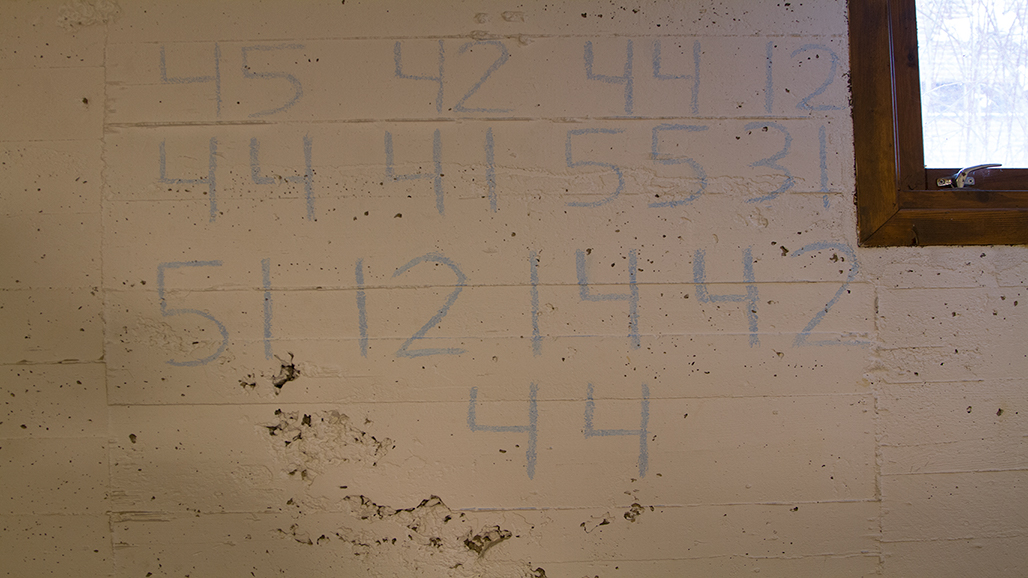 45 42 44 12
44 41 55 31
51 12 14 42
44